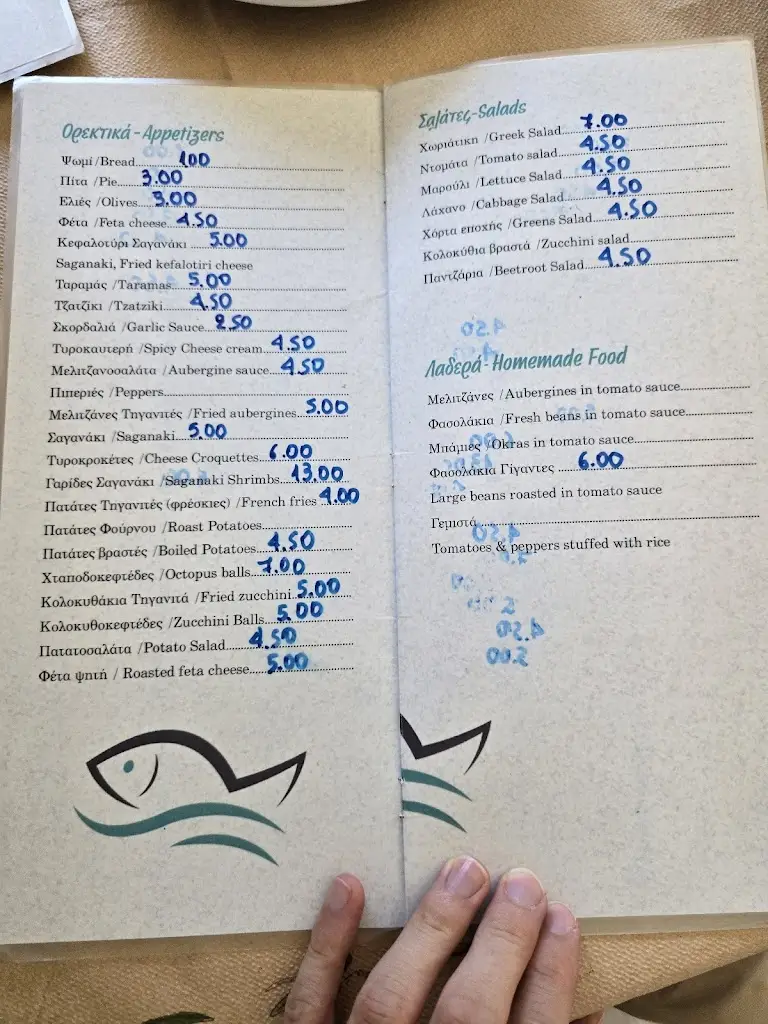 Ορεκτικά - Appetizers
Ψωμί /Bread 1.00
Πίτα /Pie 3.00
Ελιές /Olives 3.00
Φέτα /Feta cheese 4.50
Κεφαλοτύρι Σαγανάκι 5.00
Saganaki, Fried kefalotiri cheese
Ταραμάς /Taramas 5.00
Τζατζίκι /Tzatziki 4.50
Σκορδαλιά /Garlic Sauce 2.50
Τυροκαυτερή /Spicy Cheese cream 4.50
Μελιτζανοσαλάτα /Aubergine sauce 4.50
Πιπεριές /Peppers
Μελιτζάνες Τηγανιτές /Fried aubergines 5.00
Σαγανάκι /Saganaki 5.00
Τυροκροκέτες /Cheese Croquettes 6.00
Γαρίδες Σαγανάκι /Saganaki Shrimbs 13.00
Πατάτες Τηγανιτές (φρέσκιες) /French fries 4.00
Πατάτες Φούρνου /Roast Potatoes
Πατάτες βραστές /Boiled Potatoes 4.50
Χταποδοκεφτέδες /Octopus balls 7.00
Κολοκυθάκια Τηγανιτά /Fried zucchini 5.00
Κολοκυθοκεφτέδες /Zucchini Balls 5.00
Πατατοσαλάτα /Potato Salad 4.50
Φέτα ψητή / Roasted feta cheese 5.00
Σαλάτες-Salads
Χωριάτικη /Greek Salad 7.00
Ντομάτα /Tomato salad 4.50
Μαρούλι /Lettuce Salad 4.50
Λάχανο /Cabbage Salad 4.50
Χόρτα εποχής /Greens Salad 4.50
Κολοκύθια βραστά /Zucchini salad
Παντζάρια /Beetroot Salad 4.50
Λαδερά- Homemade Food
Μελιτζάνες /Aubergines in tomato sauce
Φασολάκια /Fresh beans in tomato sauce
Μπάμιες /Okras in tomato sauce
Φασολάκια Γίγαντες 6.00
Large beans roasted in tomato sauce
Γεμιστά
Tomatoes & peppers stuffed with rice